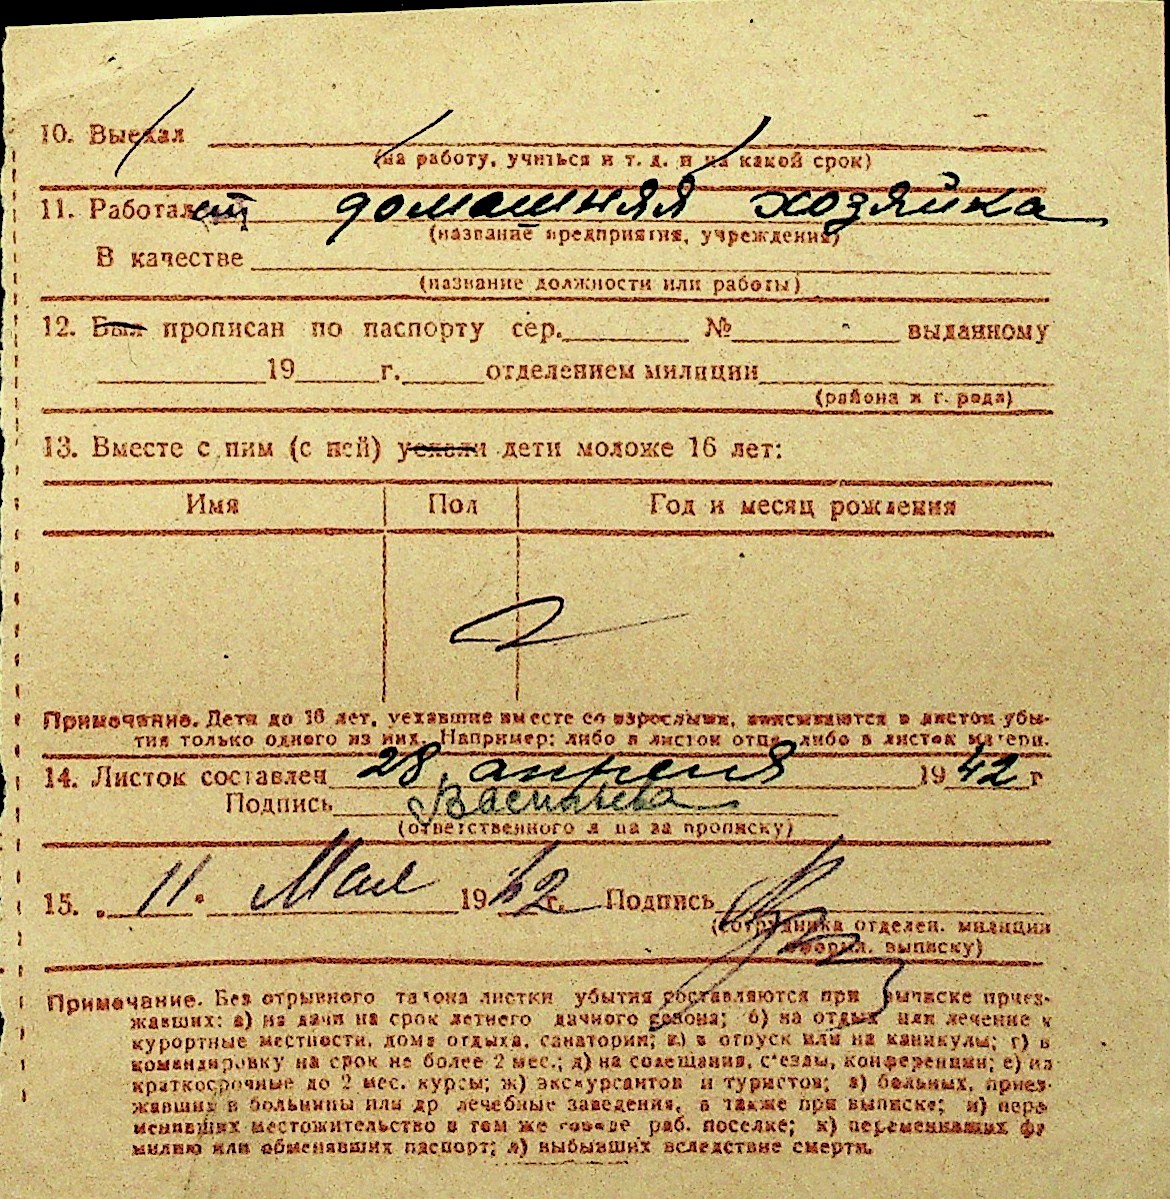 10. Выехал
(на работу, учиться и т. д. и на какой срок)
11. Работает домашняя хозяйка
(название предприятия, учреждения)
В качестве
(название должности или работы)
12. Был прописан по паспорту сер. № выданному
19 г. отделением милиции
(района и г. рода)
13. Вместе с ним (с ней) уехали дети моложе 16 лет:
Имя Пол Год и месяц рождения
Примечание. Дети до 16 лет, уехавшие вместе со взрослыми, вписываются в листок убы-
тия только одного из них. Например: либо в листок отца, либо в листок матери.
14. Листок составлен 28 апреля 1942 г
Подпись Васильева
(ответственного л ца за прописку)
15. 11. Мая 1942 г. Подпись
(сотрудника отделен. милиции
оформл. выписку)
Примечание. Без отрывного талона листки убытия составляются при выписке приез-
жавших: а) на дачи на срок летнего дачного сезона; б) на отдых или лечение в
курортные местности, дома отдыха, санатории; в) в отпуск или на каникулы; г) в
командировку на срок не более 2 мес.; д) на совещания, съезды, конференции; е) на
краткосрочные до 2 мес. курсы; ж) экскурсантов и туристов; з) больных, приез-
жавших в больницы или др лечебные заведения, а также при выписке; и) пере
менивших местожительство в том же городе раб. поселке; к) переменивших фа
милию или обменявших паспорт; л) выбывших вследствие смерти.